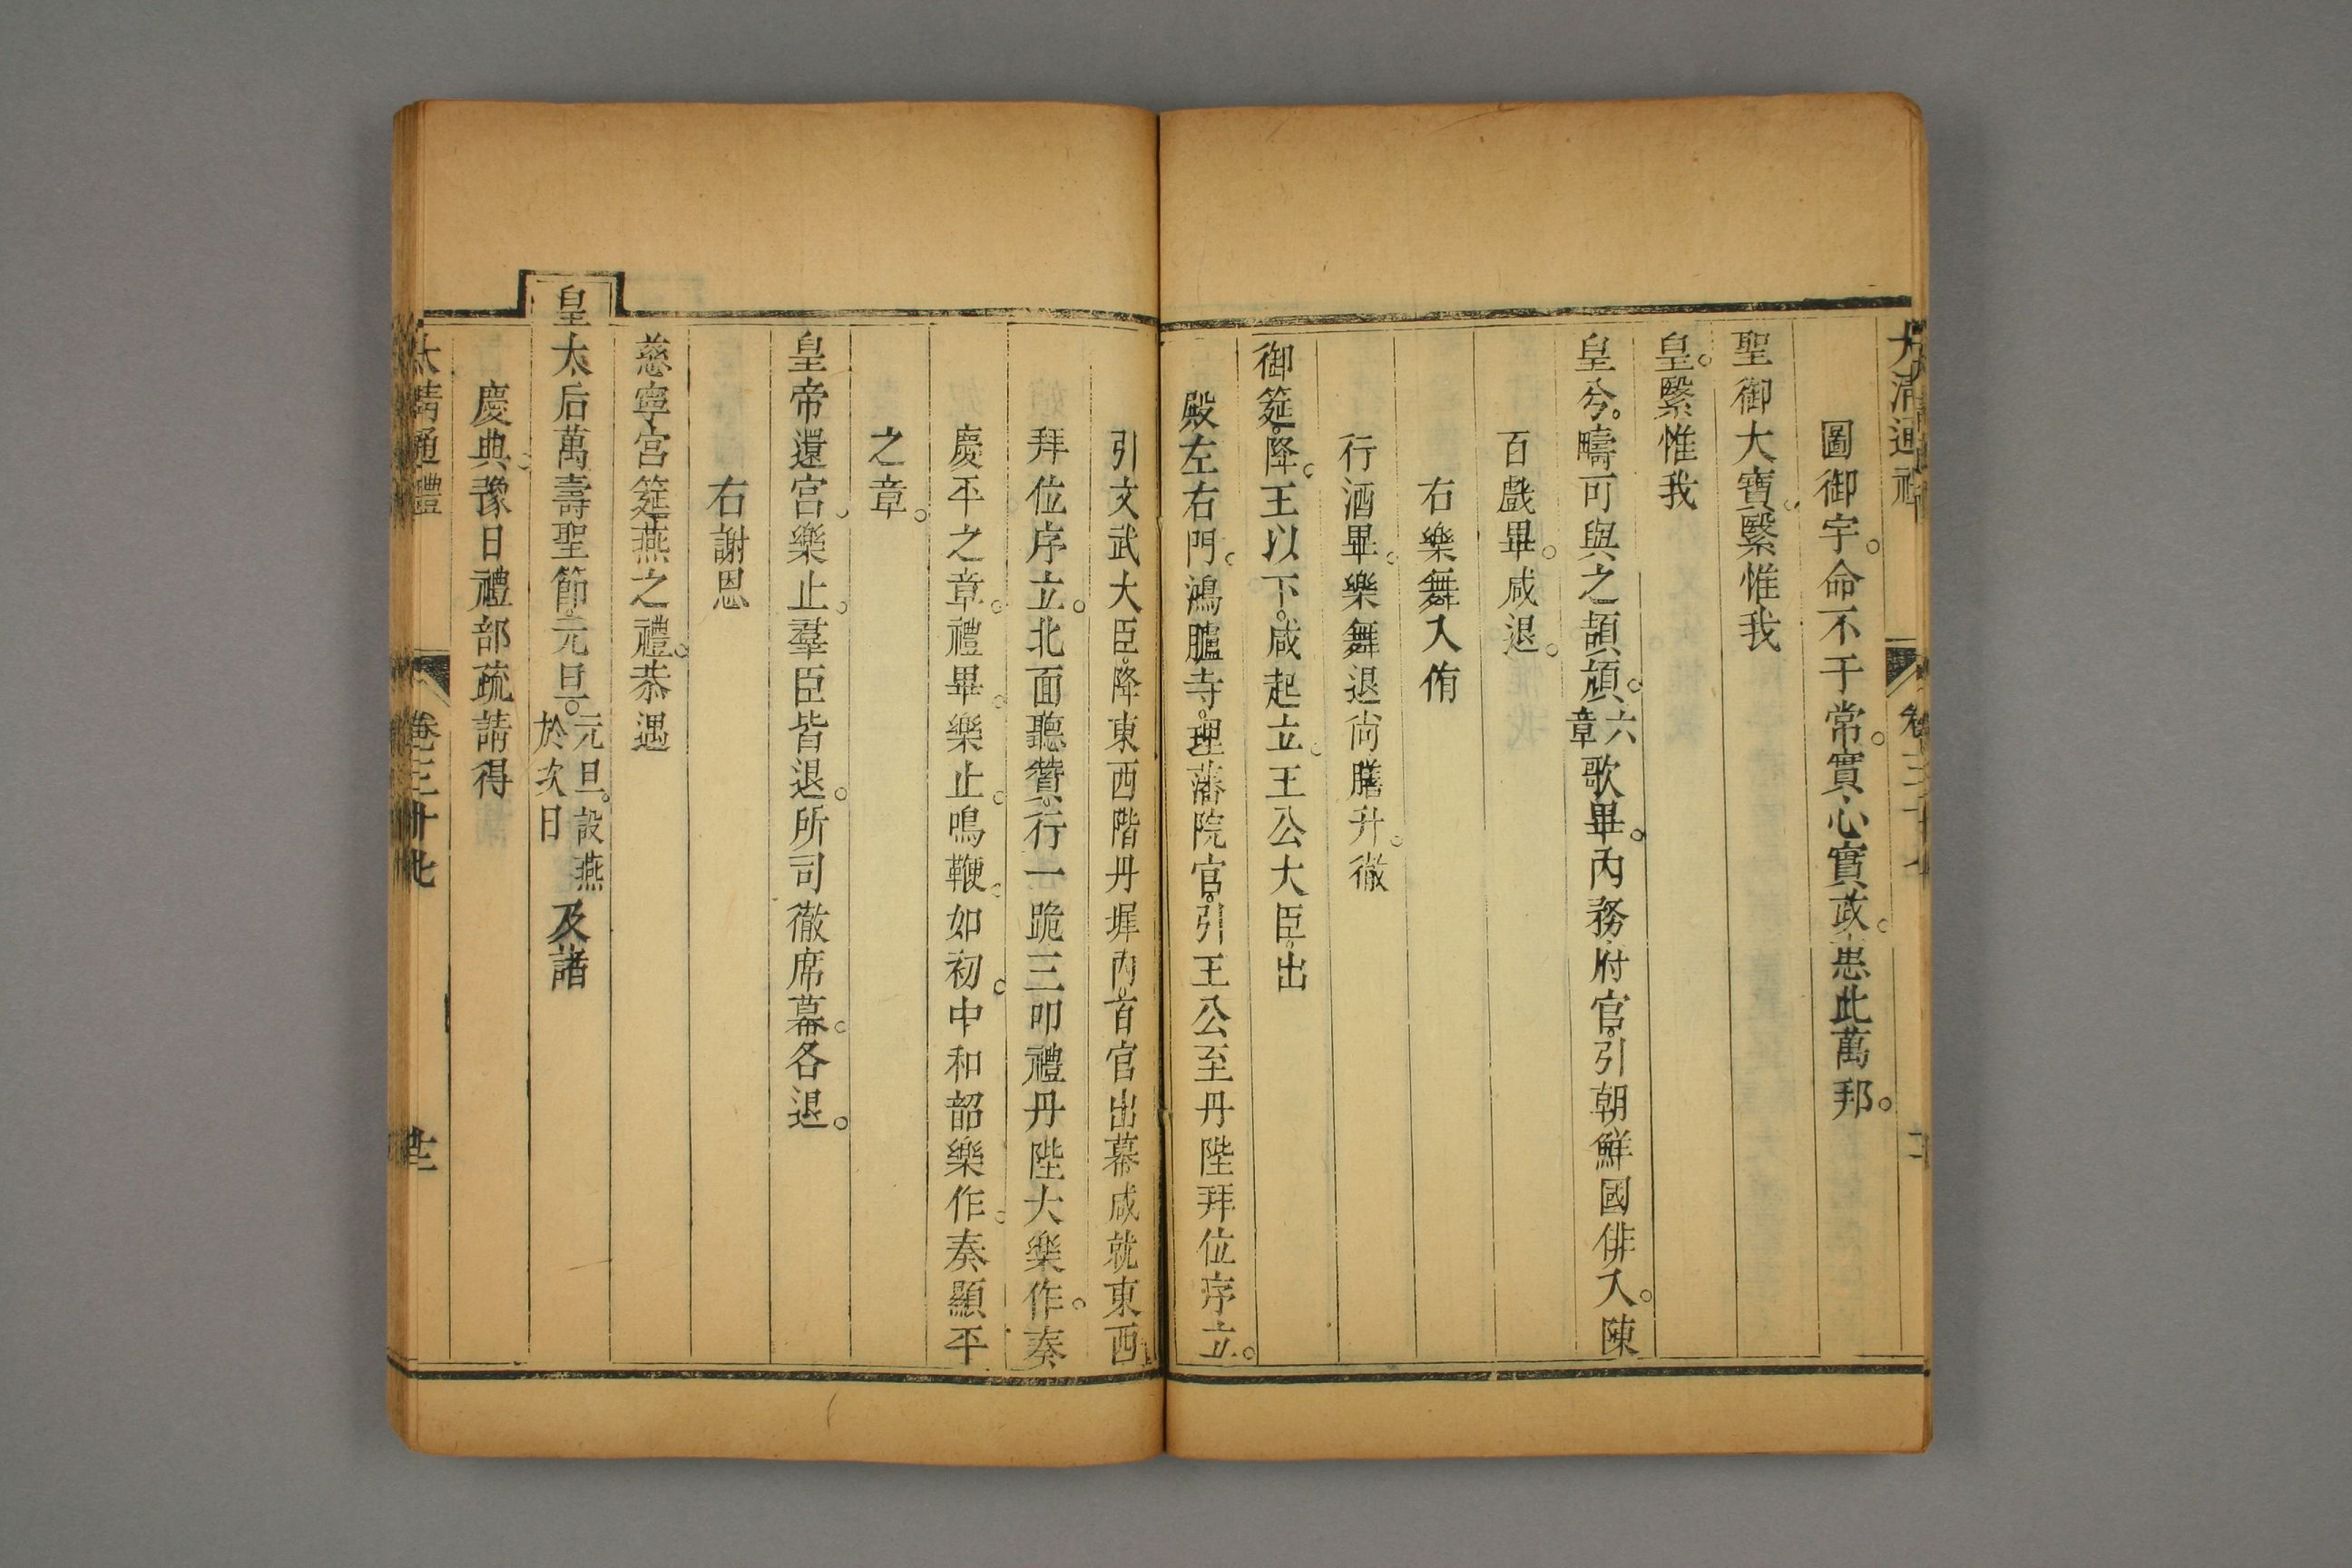 大清通禮 卷三十七
圖御宇。命不于常。實心實政。惠此萬邦。
聖御大寶。緊惟我
皇。緊惟我
皇兮。疇可與之頡頏。六章歌畢。內務府官。引朝鮮國俳入。陳
百戲畢。咸退。
右樂舞入侑
行酒畢。樂舞退。尚膳升。徹
御筵。降。王以下。咸起立。王公大臣。出
殿左右門。鴻臚寺。理藩院官。引王公至丹陛拜位序立。
引文武大臣。降東西階丹墀內。首官出幕咸就東西
拜位序立。北面聽贊。行一跪三叩禮丹陛大樂作。奏
慶平之章。禮畢。樂止。鳴鞭。如初。中和韶樂作。奏顯平
之章。
皇帝還宮。樂止。羣臣皆退。所司徹席幕。各退。
右謝恩
慈寧宮筵燕之禮。恭遇
皇太后萬壽聖節。元旦。元旦。設燕於次日及諸
慶典。豫日禮部疏請得
大清通禮 卷三十七 廿二